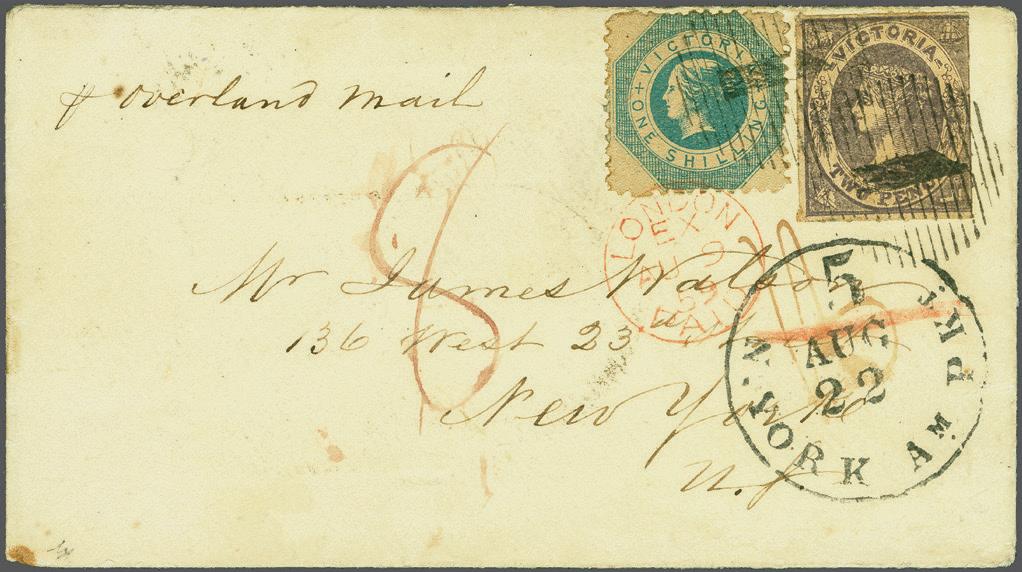 overland mail
VICTORIA
ONE SHILLING
VICTORIA
TWO PENCE
LONDON
EX
9
59
PAID
8
Mr James Watson
136 West 23
New York
U.S
5
AUG
22
N. YORK AM. PKT.